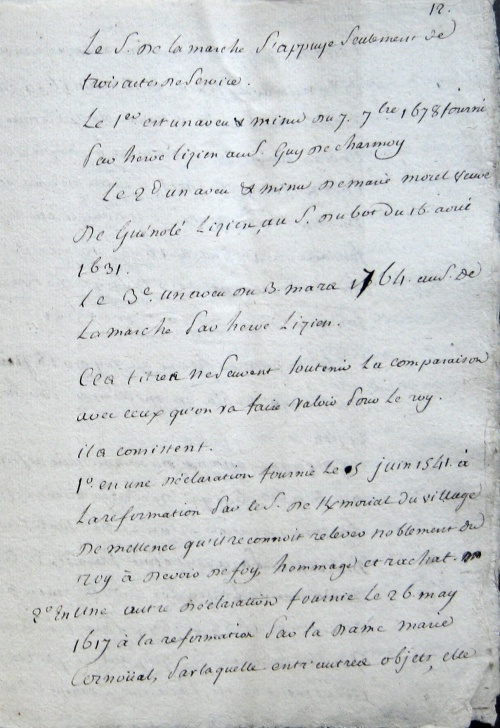 12.
Le S. de la marche s'appuye seulement de
trois actes de service.
Le 1er est un aveu & minu du 7. 7bre 1678 fourni
par hervé lizien au S. Guy de charmoy
Le 2d un aveu & minu de marie morel veuve
de Guénolé Lizien, au S. du bot du 16 avril
1631.
Le 3e. un aveu du 3. mars 1764. au S. de
La marche par hervé Lizien.
Ces titres ne peuvent soutenir la comparaison
avec ceux qu'on va faire valoir pour le roy.
ils consistent.
1o. en une déclaration fournie le 5 juin 1541. à
La reformation par le S. de Kmorial du village
de mellenec qu'il reconnoit relever noblement du
roy à devoir de foy, hommage et rachat.
2o En une autre déclaration fournie le 26 may
1617 à la reformation par la dame marie
Cornoüal, par laquelle entr'autres objets, elle